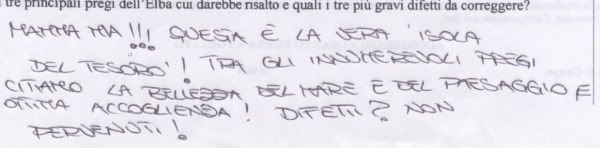 tre principali pregi dell'Elba cui darebbe risalto e quali i tre più gravi difetti da correggere?
MAMMA MIA!!! QUESTA È LA VERA 'ISOLA
DEL TESORO'! TRA GLI INNUMEREVOLI PREGI
CITIAMO LA BELLEZZA DEL MARE E DEL PAESAGGIO E
OTTIMA ACCOGLIENZA! DIFETTI? NON
PERVENUTI!